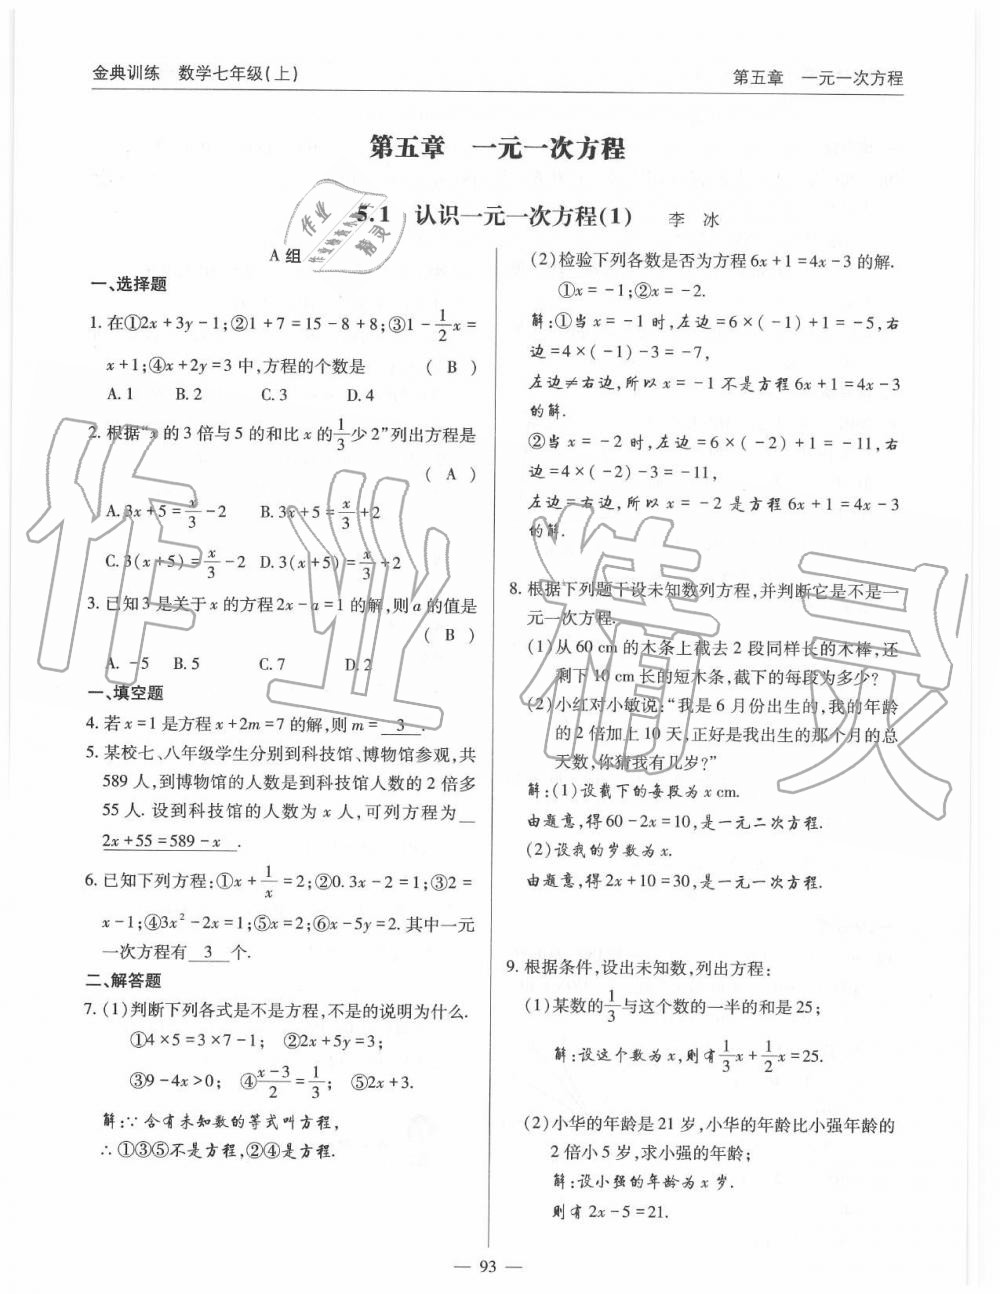 金典训练 数学七年级(上)
第五章 一元一次方程
第五章 一元一次方程
5.1 认识一元一次方程(1) 李 冰
A 组
一、选择题
1. 在①2x+3y-1;②1+7=15-8+8;③1-1/2x=
x+1;④x+2y=3 中,方程的个数是 ( B )
A. 1 B. 2 C. 3 D. 4
2. 根据“x 的 3 倍与 5 的和比 x 的1/3少 2”列出方程是
( A )
A. 3x+5=x/3-2 B. 3x+5=x/3+2
C. 3(x+5)=x/3-2 D. 3(x+5)=x/3+2
3. 已知 3 是关于 x 的方程 2x-a=1 的解,则 a 的值是
( B )
A. -5 B. 5 C. 7 D. 2
一、填空题
4. 若 x=1 是方程 x+2m=7 的解,则 m= 3 .
5. 某校七、八年级学生分别到科技馆、博物馆参观,共
589 人,到博物馆的人数是到科技馆人数的 2 倍多
55 人. 设到科技馆的人数为 x 人,可列方程为
2x+55=589-x .
6. 已知下列方程:①x+1/x=2;②0.3x-2=1;③2=
x-1;④3x²-2x=1;⑤x=2;⑥x-5y=2. 其中一元
一次方程有 3 个.
二、解答题
7. (1)判断下列各式是不是方程,不是的说明为什么.
①4×5=3×7-1; ②2x+5y=3;
③9-4x>0; ④(x-3)/2=1/3; ⑤2x+3.
解:∵含有未知数的等式叫方程,
∴①③⑤不是方程,②④是方程.
(2)检验下列各数是否为方程 6x+1=4x-3 的解.
①x=-1;②x=-2.
解:①当 x=-1 时,左边=6×(-1)+1=-5,右
边=4×(-1)-3=-7,
左边≠右边,所以 x=-1 不是方程 6x+1=4x-3
的解.
②当 x=-2 时,左边=6×(-2)+1=-11,右
边=4×(-2)-3=-11,
左边=右边,所以 x=-2 是方程 6x+1=4x-3
的解.
8. 根据下列题干设未知数列方程,并判断它是不是一
元一次方程.
(1)从 60 cm 的木条上截去 2 段同样长的木棒,还
剩下 10 cm 长的短木条,截下的每段为多少?
(2)小红对小敏说:“我是 6 月份出生的,我的年龄
的 2 倍加上 10 天,正好是我出生的那个月的总
天数,你猜我有几岁?”
解:(1)设截下的每段为 x cm.
由题意,得 60-2x=10,是一元二次方程.
(2)设我的岁数为 x.
由题意,得 2x+10=30,是一元一次方程.
9. 根据条件,设出未知数,列出方程:
(1)某数的1/3与这个数的一半的和是 25;
解:设这个数为 x,则有1/3x+1/2x=25.
(2)小华的年龄是 21 岁,小华的年龄比小强年龄的
2 倍小 5 岁,求小强的年龄;
解:设小强的年龄为 x 岁.
则有 2x-5=21.
— 93 —
作业精灵
作业精灵